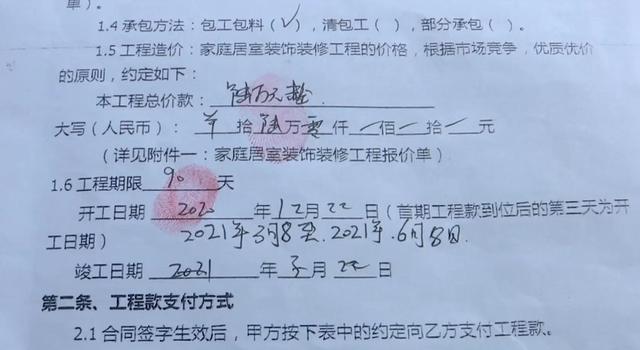 单）。
1.4 承包方法：包工包料（✓），清包工（ ），部分承包（ ）。
1.5 工程造价：家庭居室装饰装修工程的价格，根据市场竞争，优质优价
的原则，约定如下：
本工程总价款：陆万元整
大写（人民币）： 拾 陆 万 零 仟 佰 拾 元
（详见附件一：家庭居室装饰装修工程报价单）
1.6 工程期限 90 天
开工日期 2020 年 12 月 22 日（首期工程款到位后的第三天为开
工日期） 2021年3月8至2021年6月8日.
竣工日期 2021 年 3 月 22 日
第二条、工程款支付方式
2.1 合同签字生效后，甲方按下表中的约定向乙方支付工程款。